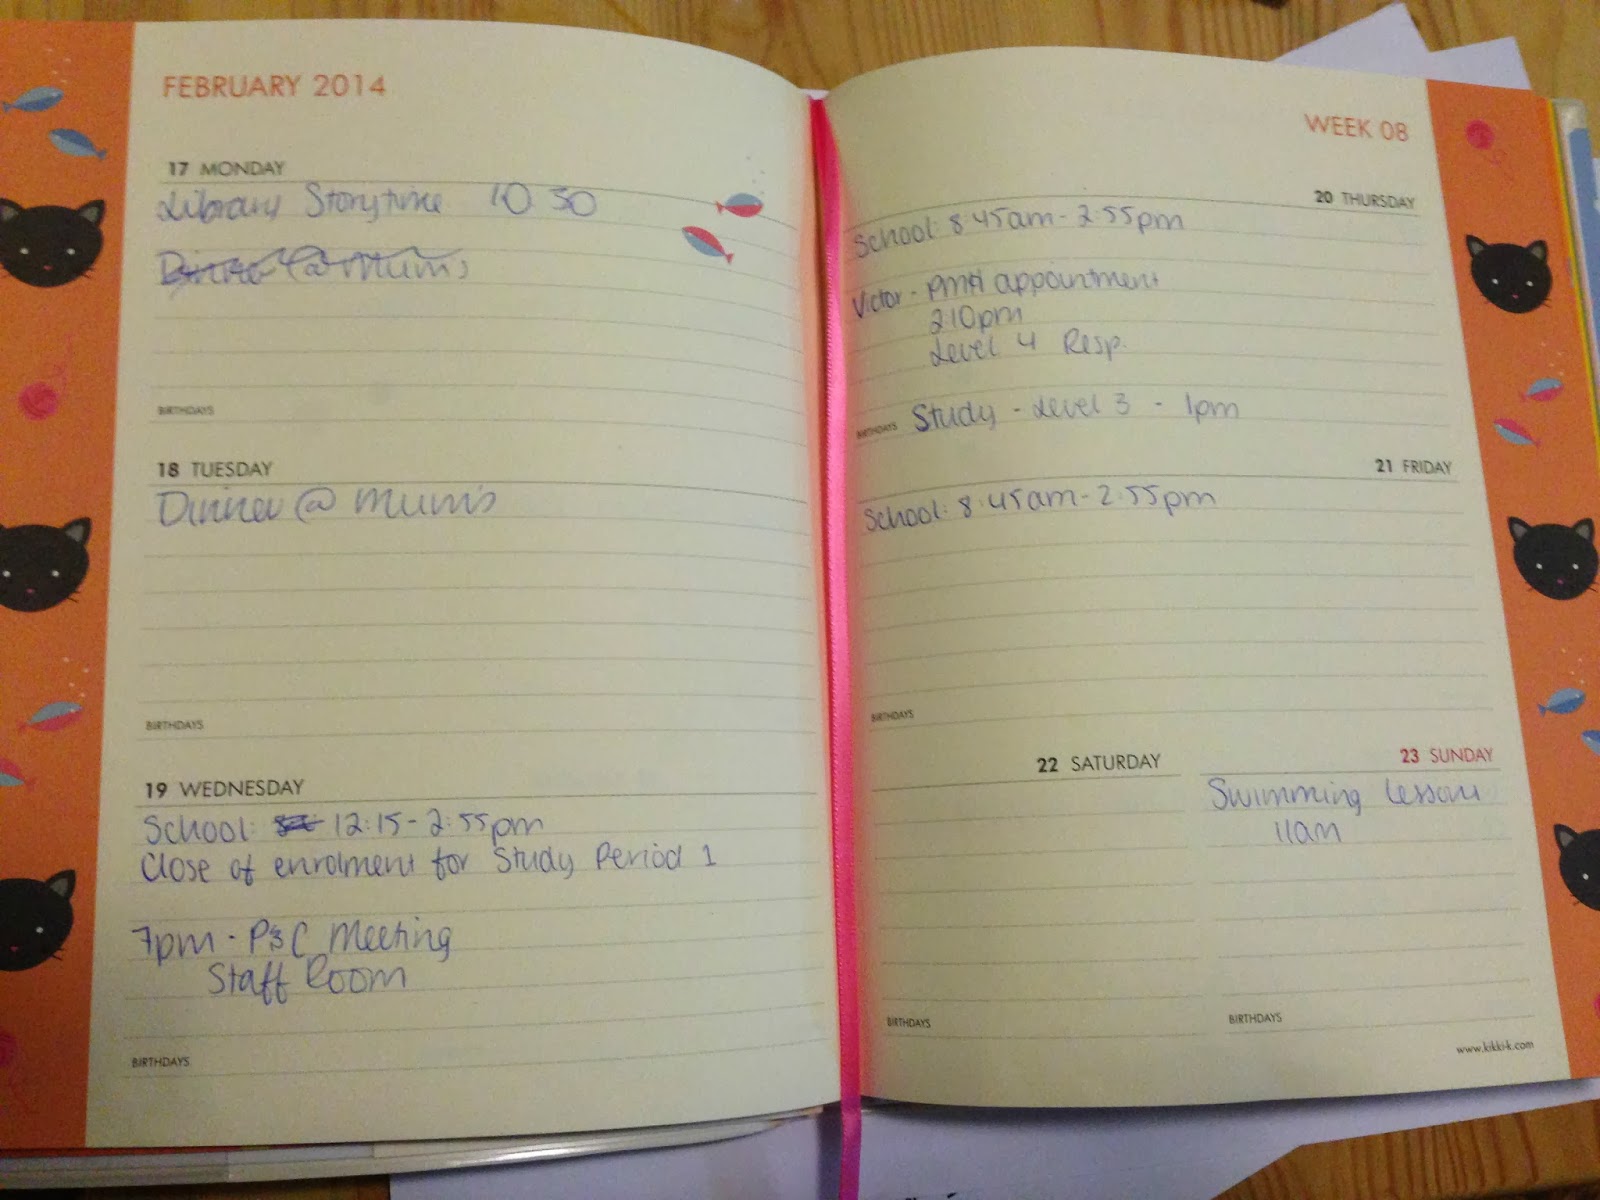 FEBRUARY 2014
17 MONDAY
Library Storytime 10 30
Dinner @ Mum's
BIRTHDAYS
18 TUESDAY
Dinner @ Mum's
BIRTHDAYS
19 WEDNESDAY
School: 12:15 - 2:55pm
Close of enrolment for Study Period 1
7pm - P&C Meeting
Staff Room
BIRTHDAYS
WEEK 08
20 THURSDAY
School: 8:45am - 2:55pm
Victor - PMH appointment
2:10pm
Level 4 Resp.
BIRTHDAYS Study - Level 3 - 1pm
21 FRIDAY
School: 8:45am - 2:55pm
BIRTHDAYS
22 SATURDAY
BIRTHDAYS
23 SUNDAY
Swimming Lesson
11am
BIRTHDAYS
www.kikki-k.com